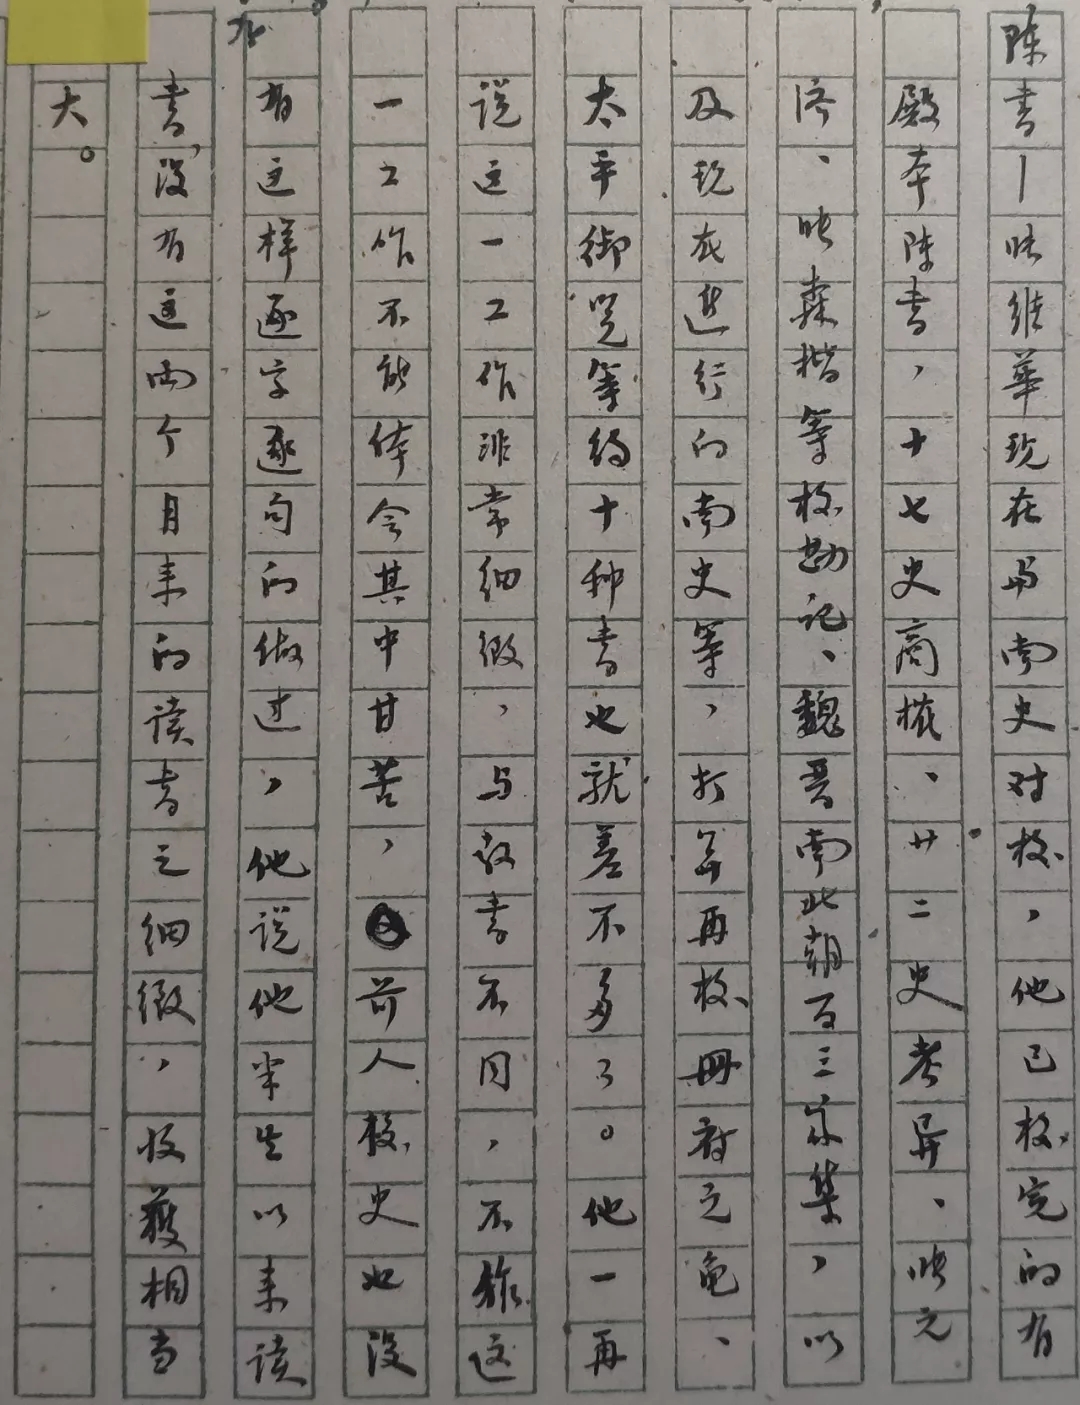 陈书—张维华现在与南史对校，他已校完的有
殿本陈书，十七史商榷、廿二史考异、张元
济、张森楷等校勘记、魏晋南北朝百三家集，以
及现在进行的南史等，打算再校册府元龟、
太平御览等约十种书也就差不多了。他一再
说这一工作非常细微，与教书不同，不作这
一工作不能体会其中甘苦，前人校史也没
有这样逐字逐句的做过，他说他半生以来读
书，没有这两个月来的读书之细微，收获相当
大。